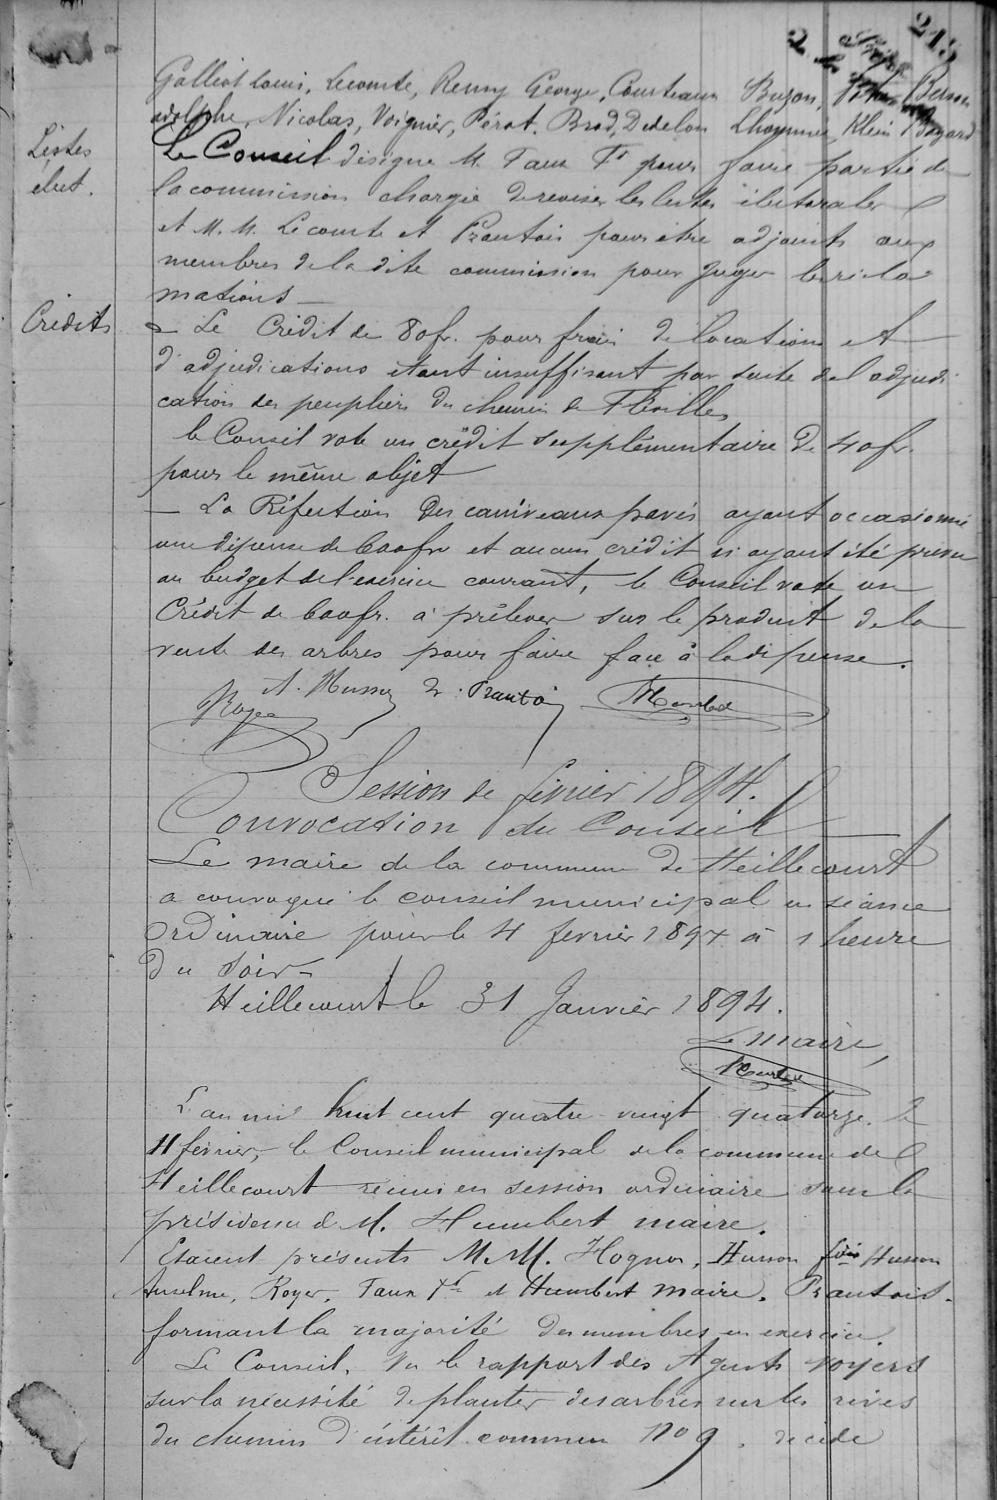 213
Galliot Louis, Lecomte, Remy George, Courteaux Buzon, Berson
adolphe, Nicolas, Voignier, Pérot, Brod, Dedelon Lhommée, Klein Bogard
Listes
élect.
Le Conseil désigne M. Faux Fr pour faire partie de
la commission chargée de reviser les listes électorales
et M.M. Lecomte et Prautois pour être adjoints aux
membres de la dite commission pour juger les récla
mations —
Crédits
— Le Crédit de 80 fr. pour frais de locations et
d'adjudications étant insuffisant par suite de l'adjudi
cation des peupliers du chemin de Fléville,
le Conseil vote un crédit supplémentaire de 40 fr.
pour le même objet
— La Réfection des caniveaux pavés ayant occasionné
une dépense de 600 fr et aucun crédit n'ayant été prévu
au budget de l'exercice courant, le Conseil vote un
Crédit de 600 fr. à prélever sur le produit de la
vente des arbres pour faire face à la dépense.
Royer A. Husson Prautois Humbert
Session de février 1894.
Convocation du Conseil
Le maire de la commune de Heillecourt
a convoqué le conseil municipal en séance
ordinaire pour le 4 fevrier 1894 à 1 heure
du soir
Heillecourt le 31 Janvier 1894.
Le maire,
Humbert
L'an mil huit cent quatre-vingt quatorze, le
4 février, le Conseil municipal de la commune de
Heillecourt réuni en session ordinaire sous la
présidence de M. Humbert maire.
Etaient présents M.M. Hognon, Husson fois Husson
Anselme, Royer, Faux Fr et Humbert maire. Prautois.
formant la majorité des membres en exercice.
Le Conseil, Vu le rapport des Agents voyers
sur la nécessité de planter des arbres sur les rives
du chemin d'intérêt commun No 9, décide